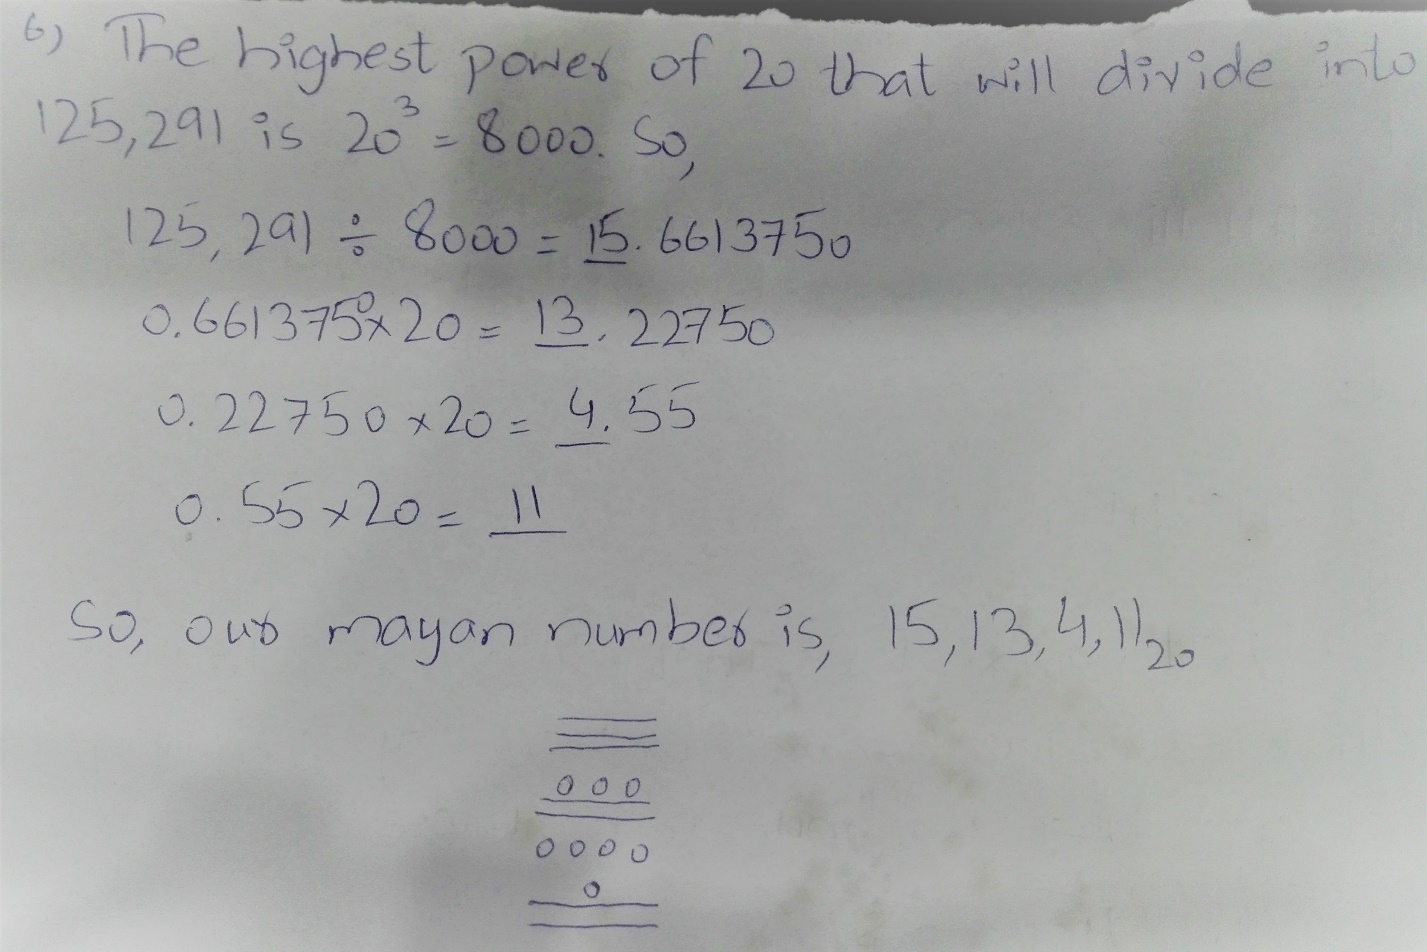 6) The highest power of 20 that will divide into
125,291 is 20³ = 8000. So,
125,291 ÷ 8000 = 15.6613750
0.6613750×20 = 13.22750
0.22750×20 = 4.55
0.55×20 = 11
So, our mayan number is, 15,13,4,11₂₀